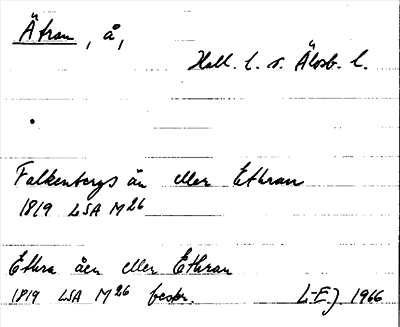 Ätran, å,
Hall. l. o. Älvsb. l.
Falkenbergs ån eller Ethran
1819 LSA M26
Ethra åen eller Ethran
1819 LSA M26 beskr. L-Ej. 1966